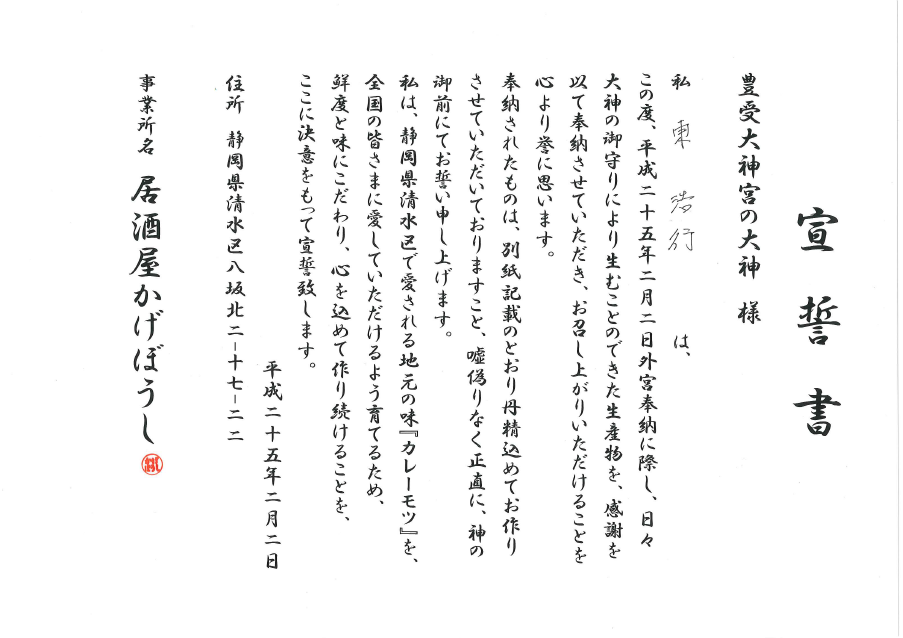 宣誓書
豊受大神宮の大神 様
私 東 浩行 は、
この度、平成二十五年二月二日外宮奉納に際し、日々
大神の御守りにより生むことのできた生産物を、感謝を
以て奉納させていただき、お召し上がりいただけることを
心より誉に思います。
奉納されたものは、別紙記載のとおり丹精込めてお作り
させていただいておりますこと、嘘偽りなく正直に、神の
御前にてお誓い申し上げます。
私は、静岡県清水区で愛される地元の味『カレーモツ』を、
全国の皆さまに愛していただけるよう育てるため、
鮮度と味にこだわり、心を込めて作り続けることを、
ここに決意をもって宣誓致します。
平成二十五年二月二日
住所 静岡県清水区八坂北二－十七－二二
事業所名 居酒屋かげぼうし